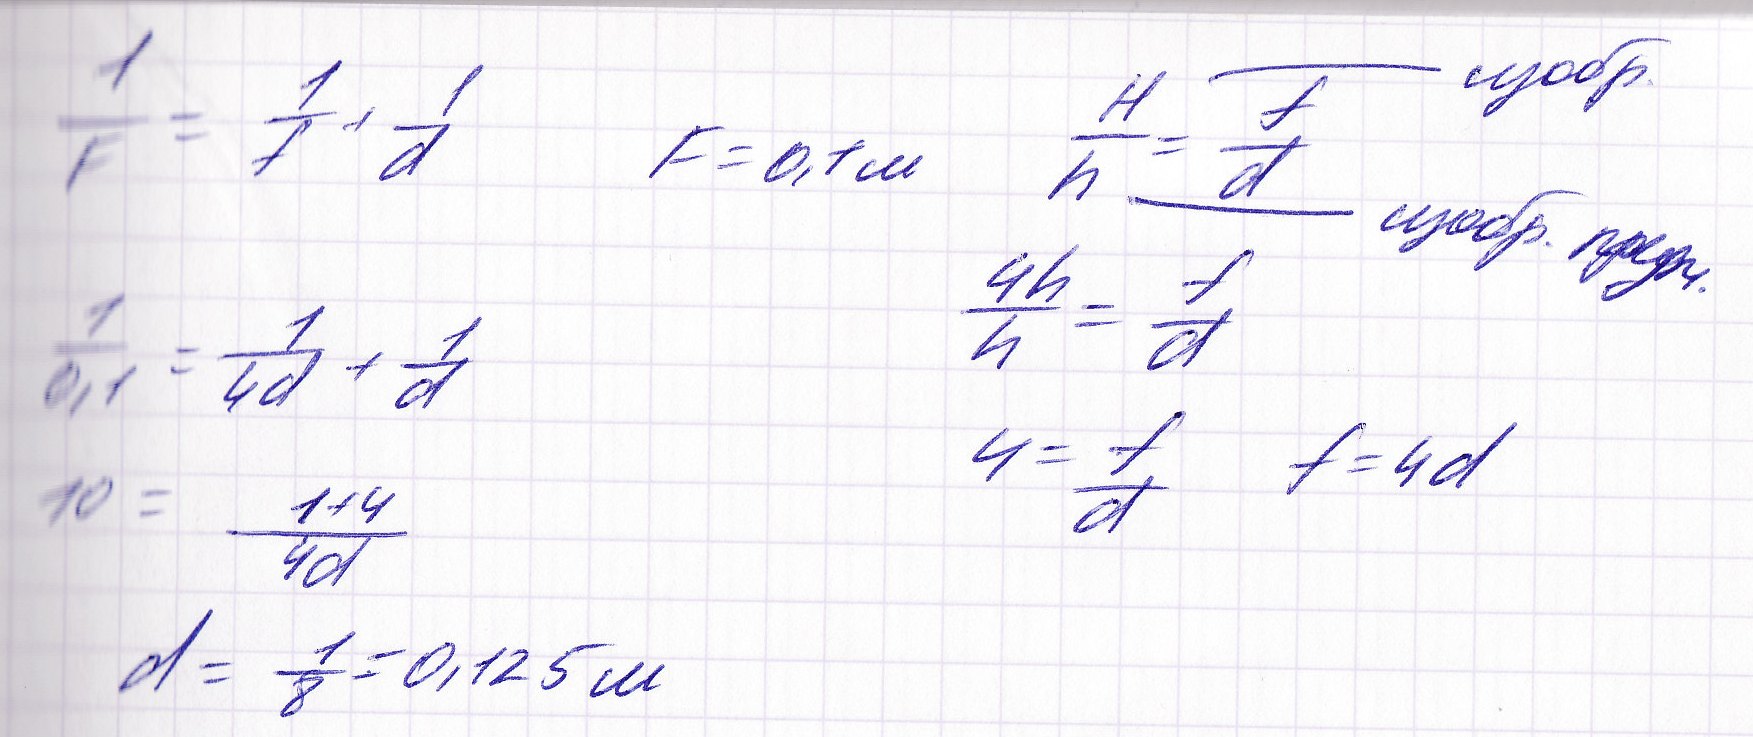 1/F = 1/f + 1/d
F = 0,1 м
H/h = f/d
изобр.
изобр.
4h/h = f/d
1/0,1 = 1/4d + 1/d
4 = f/d f = 4d
10 = 1+4/4d
d = 1/8 = 0,125 м